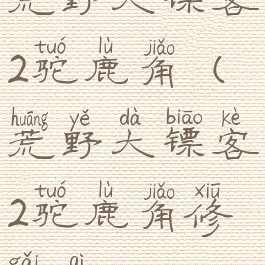 荒野大镖客
tuó lù jiǎo
2驼鹿角（
huāng yě dà biāo kè
荒野大镖客
tuó lù jiǎo xiū
2驼鹿角修
gǎi qì